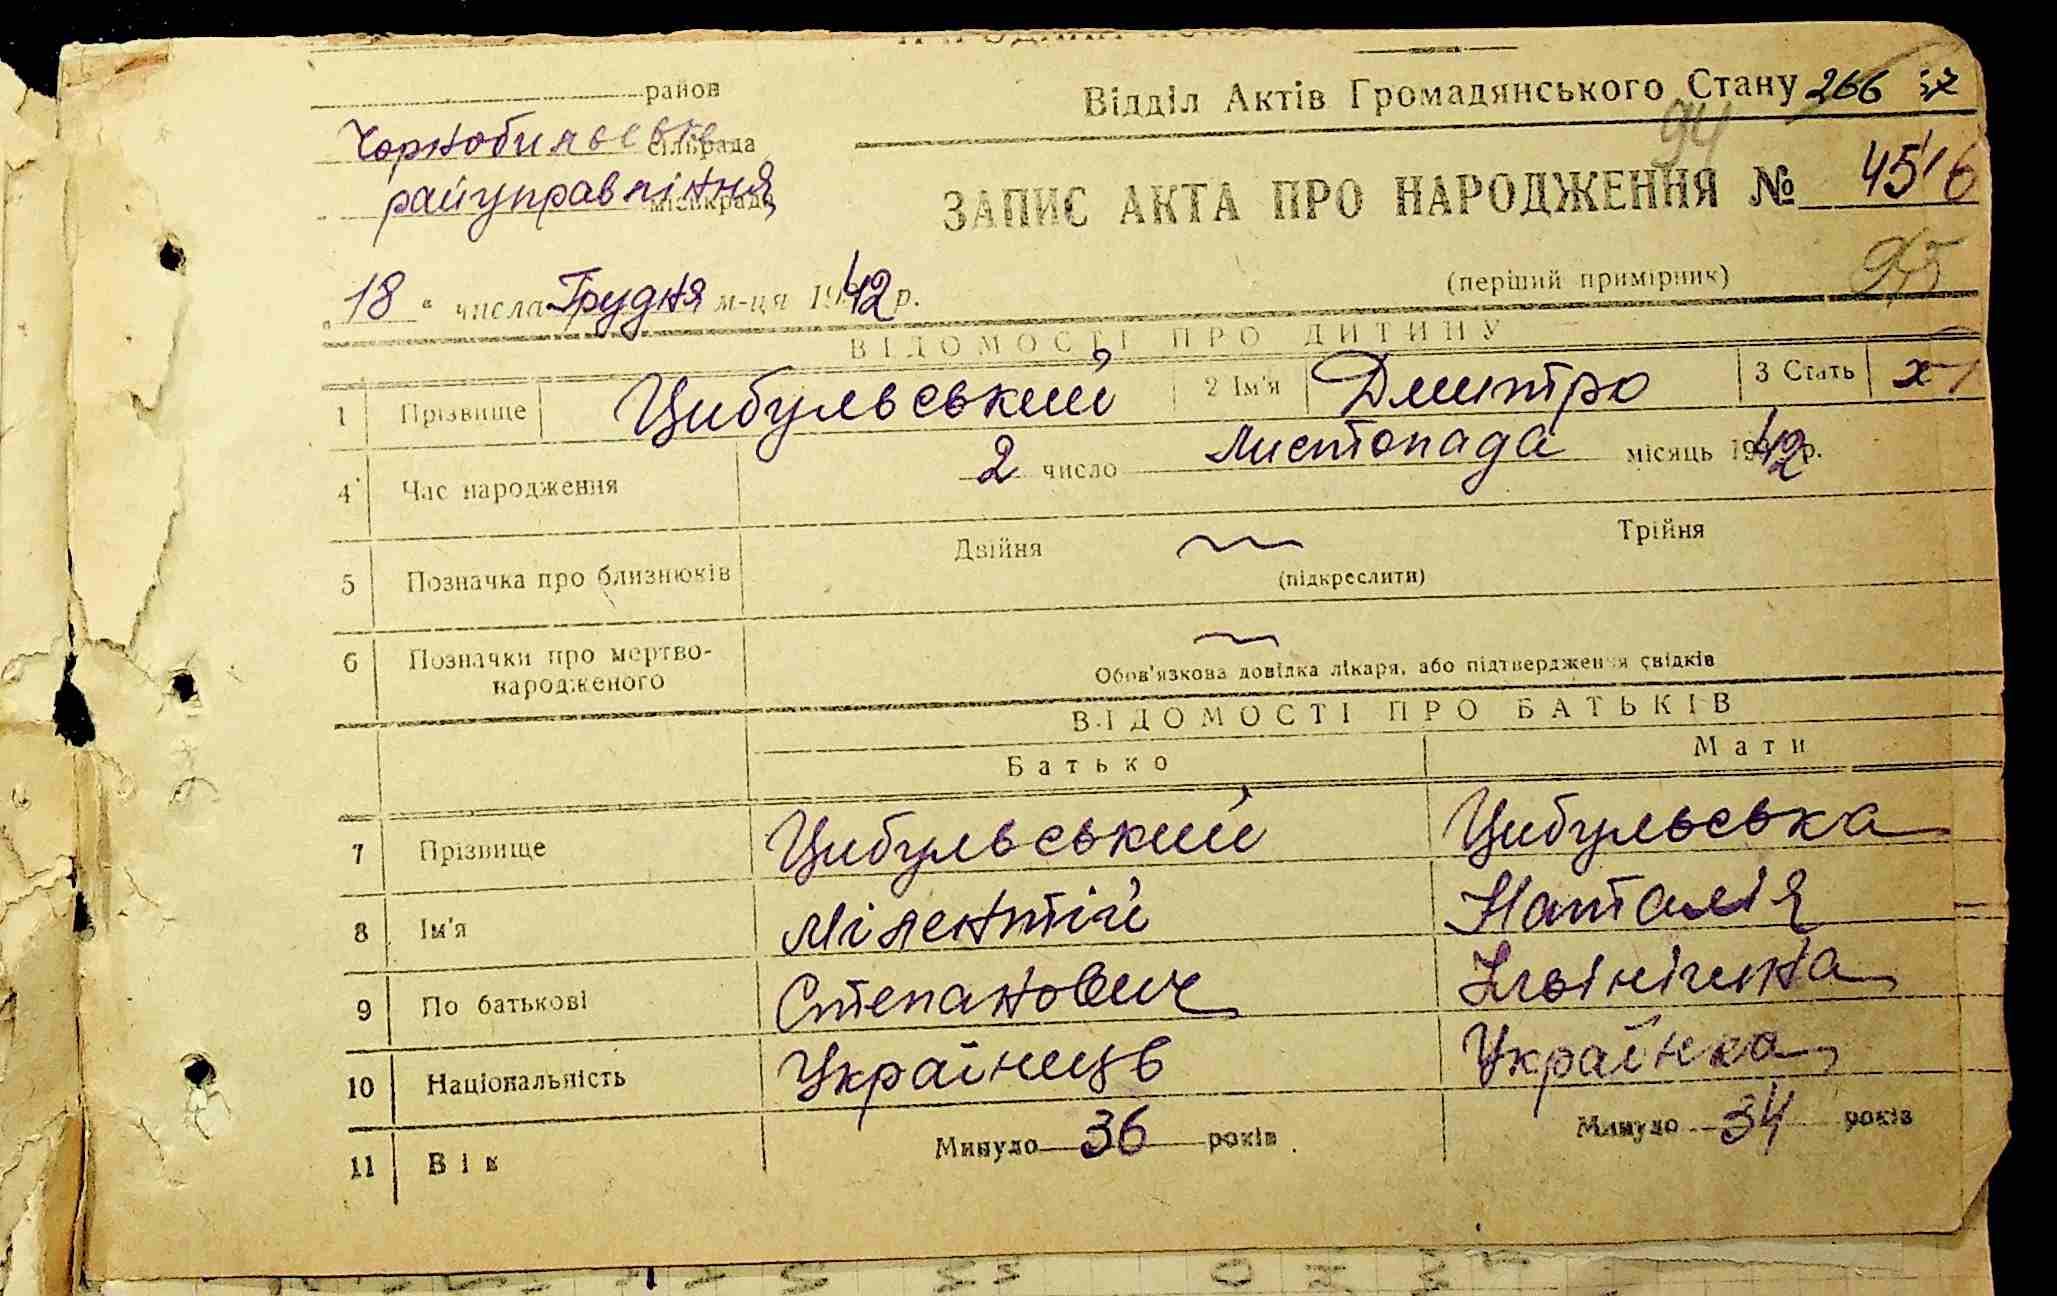 район
Відділ Актів Громадянського Стану 266
Чорнобильське сільрада
райуправління міськрада
94
ЗАПИС АКТА ПРО НАРОДЖЕННЯ № 4516
„18“ числа Грудня м-ця 1942 р.
(перший примірник) 95
ВІДОМОСТІ ПРО ДИТИНУ
1 Прізвище Цибульський 2 Ім'я Дмитро 3 Стать
4 Час народження 2 число Листопада місяць 1942 р.
5 Позначка про близнюків Двійня Трійня
(підкреслити)
6 Позначки про мертво-
народженого
Обов'язкова довідка лікаря, або підтвердження свідків
ВІДОМОСТІ ПРО БАТЬКІВ
Батько Мати
7 Прізвище Цибульський Цибульська
8 Ім'я Мілентій Наталія
9 По батькові Степанович
10 Національність Українець Українка
11 Вік Минуло 36 років Минуло 34 років